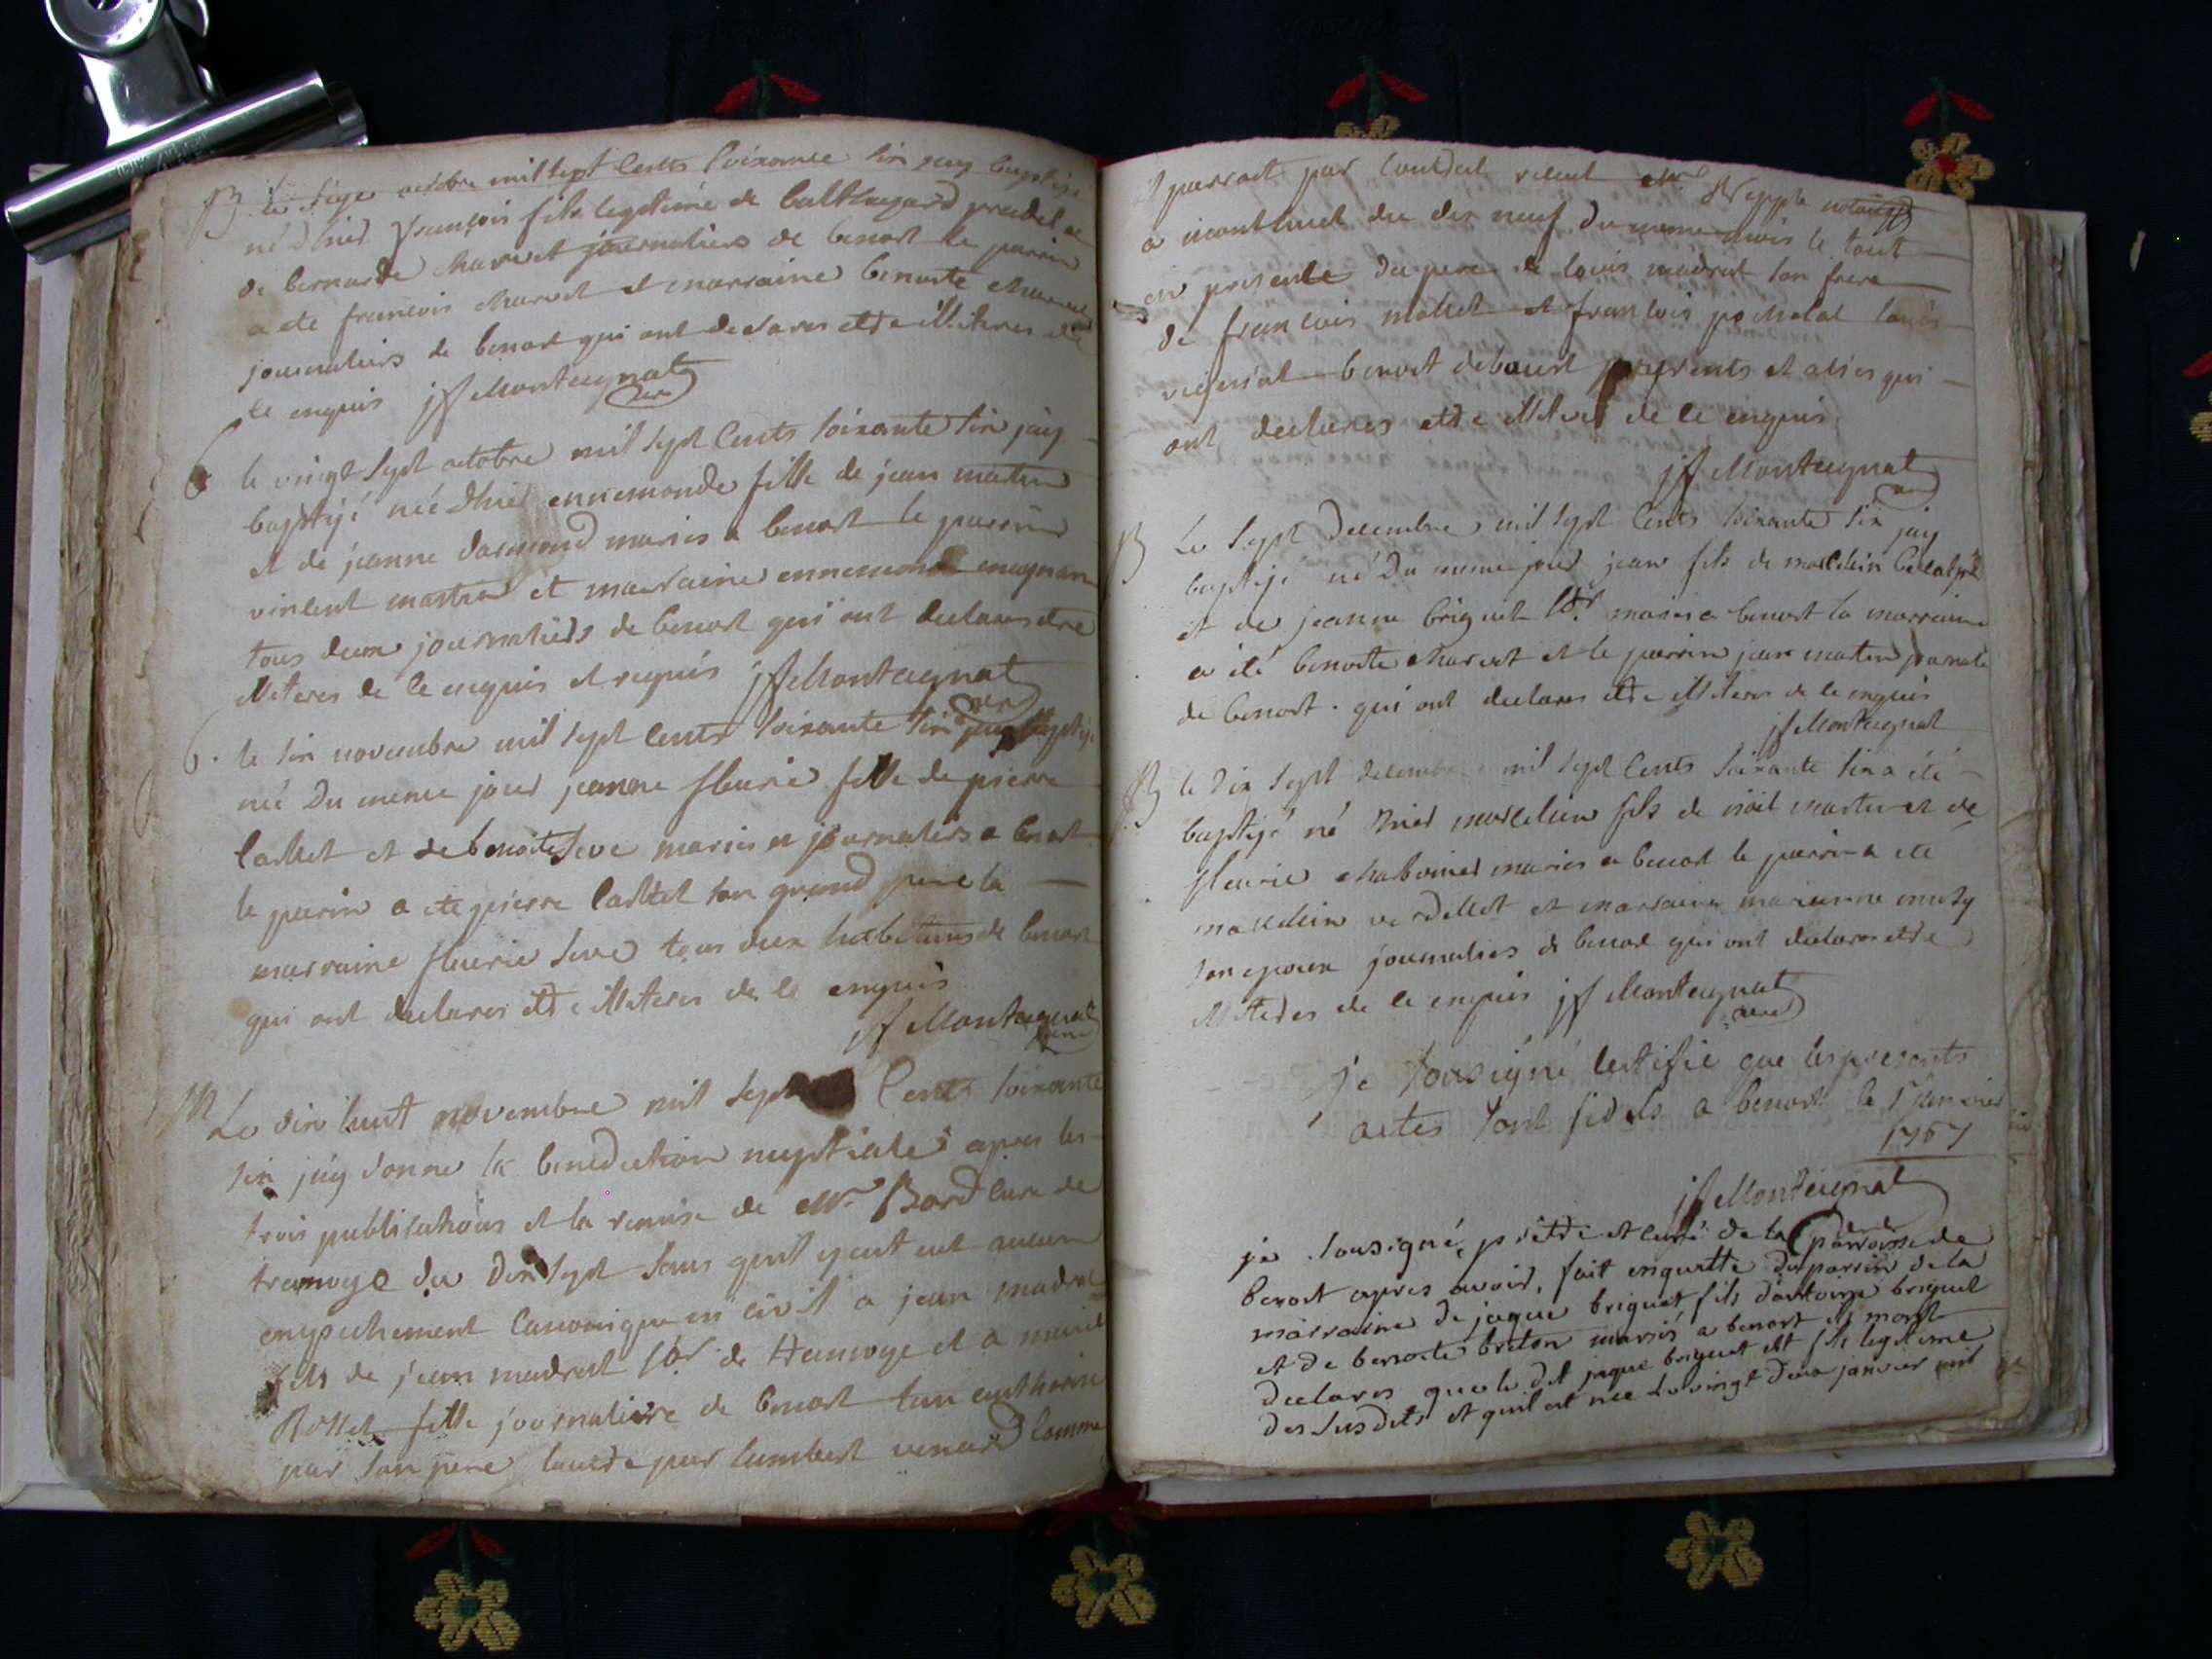 B le seze octobre mil sept cents soixante six jay baptisé
né d'hier françois fils legitime de balthazard pradel et
de bernarde charvet journaliers de benost le parrin
a ete francois charvet et marraine benoite charvet
journaliers de benost qui ont declares etre illiteres de
ce enquis jf Montagnat
le vingt sept octobre mil sept cents soixante six jay
baptisé née d'hier ennemonde fille de jean martin
et de jeanne mariés a benost le parrin
vincent martin et marraine ennemonde
tous deux journaliers de benost qui ont declares etre
illiteres de ce enquis et requis jf Montagnat
b. le six novembre mil sept cents soixante six jay baptisé
né du meme jour jeanne fleurie fille de pierre
et de benoite seve mariés et journaliers a benost
le parrin a ete pierre son grand pere la
marraine fleurie seve tous deux habitans de benost
qui ont declares etre illiteres de ce enquis
jf Montagnat
M Le dix huit novembre mil sept cents soixante
six jay donné la benediction nuptiale apres les
trois publications et la remise de Mr Bord curé de
tramoye du dix sept sans quil y eut eut aucun
empechement canonique ni civil a jean madret
fils de jean madret de tramoye et a marie
Rosset fille journaliere de benost tan authorisée
par son pere que par lambert venard comme
il parroit par recut Mr notaire
a montluel du dix neuf du meme mois le tout
en presence du pere de louis madret son frere
de francois mollet et francois pochelat
benoit debourd parents et alies qui
ont declares etre illiteres de ce enquis
jf Montagnat
B Le sept decembre mil sept cents soixante six jay
baptisé né du meme jour jean fils de marcelin
et de jeanne briguet mariés a benost la marraine
a été benoite charvet et le parrin jean martin
de benost. qui ont declares etre illiteres de ce enquis
jf Montagnat
B le dix sept decembre mil sept cents soixante six a été
baptisé né d'hier marcelin fils de martin et de
fleurie mariés a benost le parrin a ete
marcelin verdellet et marraine marianne
son epouse journaliers de benost qui ont declares etre
illiteres de ce enquis jf Montagnat
je sousigné certifie que les presents
actes sont fidels a benost le 1 janvier
1767
jf Montagnat
je sousigné, prêtre et curé de la parroisse de
benost apres avoir, fait enquette du parrin de la
marraine de jaque briguet fils d'antoine briguet
et de benoite breton mariés a benost ils m'ont
declares que le dit jaque briguet est fils legitime
des susdits et quil est née le vingt deux janvier mil